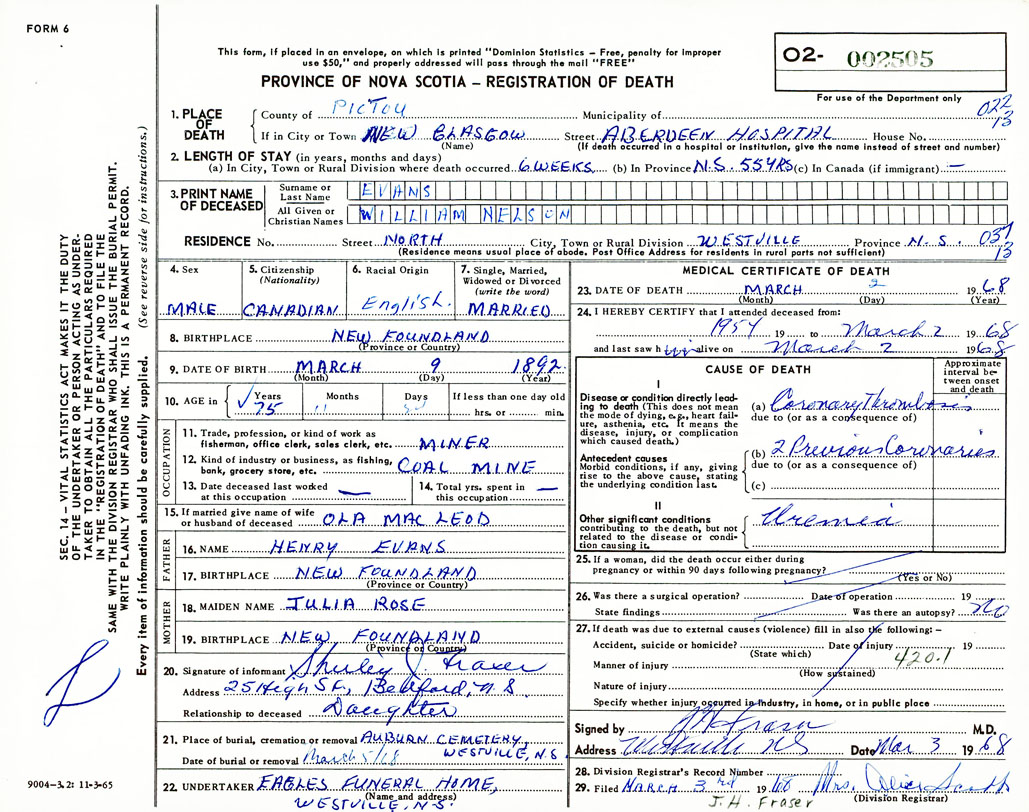 FORM 6
This form, if placed in an envelope, on which is printed "Dominion Statistics – Free, penalty for improper
use $50," and properly addressed will pass through the mail "FREE"
PROVINCE OF NOVA SCOTIA – REGISTRATION OF DEATH
02- 002505
For use of the Department only
022
13
1. PLACE OF DEATH
County of PICTOU Municipality of
If in City or Town NEW GLASGOW Street ABERDEEN HOSPITAL House No.
(Name) (If death occurred in a hospital or institution, give the name instead of street and number)
2. LENGTH OF STAY (in years, months and days)
(a) In City, Town or Rural Division where death occurred 6 WEEKS (b) In Province N.S. 55 YRS (c) In Canada (if immigrant) —
3. PRINT NAME OF DECEASED
Surname or Last Name EVANS
All Given or Christian Names WILLIAM NELSON
RESIDENCE No. Street NORTH City, Town or Rural Division WESTVILLE Province N.S. 037
13
(Residence means usual place of abode. Post Office Address for residents in rural parts not sufficient)
4. Sex
MALE
5. Citizenship
(Nationality)
CANADIAN
6. Racial Origin
English.
7. Single, Married,
Widowed or Divorced
(write the word)
MARRIED
8. BIRTHPLACE NEW FOUNDLAND
(Province or Country)
9. DATE OF BIRTH MARCH 9 1892
(Month) (Day) (Year)
10. AGE in
Years Months Days If less than one day old
75 11 hrs. or min.
OCCUPATION
11. Trade, profession, or kind of work as
fisherman, office clerk, sales clerk, etc. MINER
12. Kind of industry or business, as fishing,
bank, grocery store, etc. COAL MINE
13. Date deceased last worked
at this occupation —
14. Total yrs. spent in
this occupation —
15. If married give name of wife
or husband of deceased OLA MAC LEOD
FATHER
16. NAME HENRY EVANS
17. BIRTHPLACE NEW FOUNDLAND
(Province or Country)
MOTHER
18. MAIDEN NAME JULIA ROSE
19. BIRTHPLACE NEW FOUNDLAND
(Province or Country)
20. Signature of informant Shirley J. Fraser
Address 25 High St., Bedford, N.S.
Relationship to deceased Daughter
21. Place of burial, cremation or removal AUBURN CEMETERY,
WESTVILLE, N.S.
Date of burial or removal March 5/68
22. UNDERTAKER EAGLES FUNERAL HOME,
(Name and address)
WESTVILLE, N.S.
MEDICAL CERTIFICATE OF DEATH
23. DATE OF DEATH MARCH 2 1968
(Month) (Day) (Year)
24. I HEREBY CERTIFY that I attended deceased from:
1954 19 to March 2 1968
and last saw him alive on March 2 1968
CAUSE OF DEATH
Approximate
interval be-
tween onset
and death
I
Disease or condition directly lead-
ing to death (This does not
mean the mode of dying, e.g., heart fail-
ure, asthenia, etc. It means the
disease, injury, or complication
which caused death.)
(a) Coronary Thrombosis
due to (or as a consequence of)
Antecedent causes
Morbid conditions, if any, giving
rise to the above cause, stating
the underlying condition last.
(b) 2 Previous Coronaries
due to (or as a consequence of)
(c)
II
Other significant conditions
contributing to the death, but not
related to the disease or condi-
tion causing it.
Uremia
25. If a woman, did the death occur either during
pregnancy or within 90 days following pregnancy?
(Yes or No)
26. Was there a surgical operation? Date of operation 19
State findings Was there an autopsy? No
27. If death was due to external causes (violence) fill in also the following: –
Accident, suicide or homicide? Date of injury 19
(State which) 420.1
Manner of injury
(How sustained)
Nature of injury
Specify whether injury occurred in industry, in home, or in public place
Signed by J H Fraser M.D.
Address Westville NS Date Mar 3 1968
28. Division Registrar's Record Number
29. Filed MARCH 3rd 1968 Mrs. Alice Scott
(Division Registrar)
J. H. Fraser
SEC. 14 – VITAL STATISTICS ACT MAKES IT THE DUTY
OF THE UNDERTAKER OR PERSON ACTING AS UNDER-
TAKER TO OBTAIN ALL THE PARTICULARS REQUIRED
IN THE "REGISTRATION OF DEATH" AND TO FILE THE
SAME WITH THE DIVISION REGISTRAR WHO SHALL ISSUE THE BURIAL PERMIT.
WRITE PLAINLY WITH UNFADING INK. THIS IS A PERMANENT RECORD.
Every item of information should be carefully supplied. (See reverse side for instructions.)
9004-3.2: 11-3-65